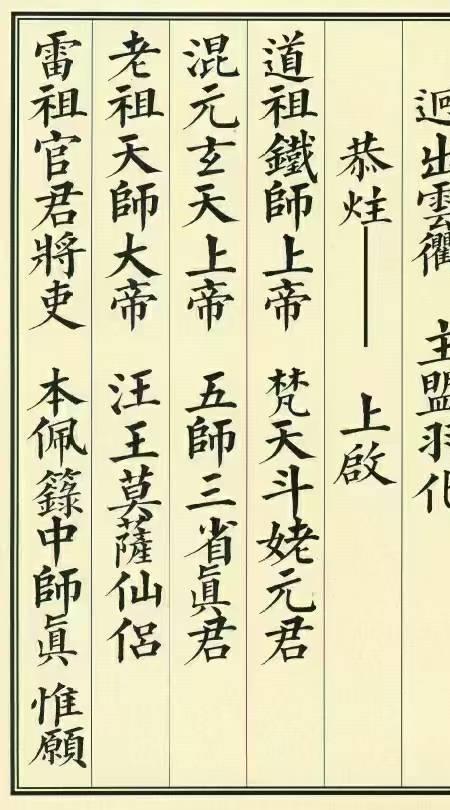 迥出雲衢 主盟羽化
恭炷——上啟
道祖鐵師上帝 梵天斗姥元君
混元玄天上帝 五師三省眞君
老祖天師大帝 汪王莫薩仙侶
雷祖官君將吏 本佩籙中師眞 惟願